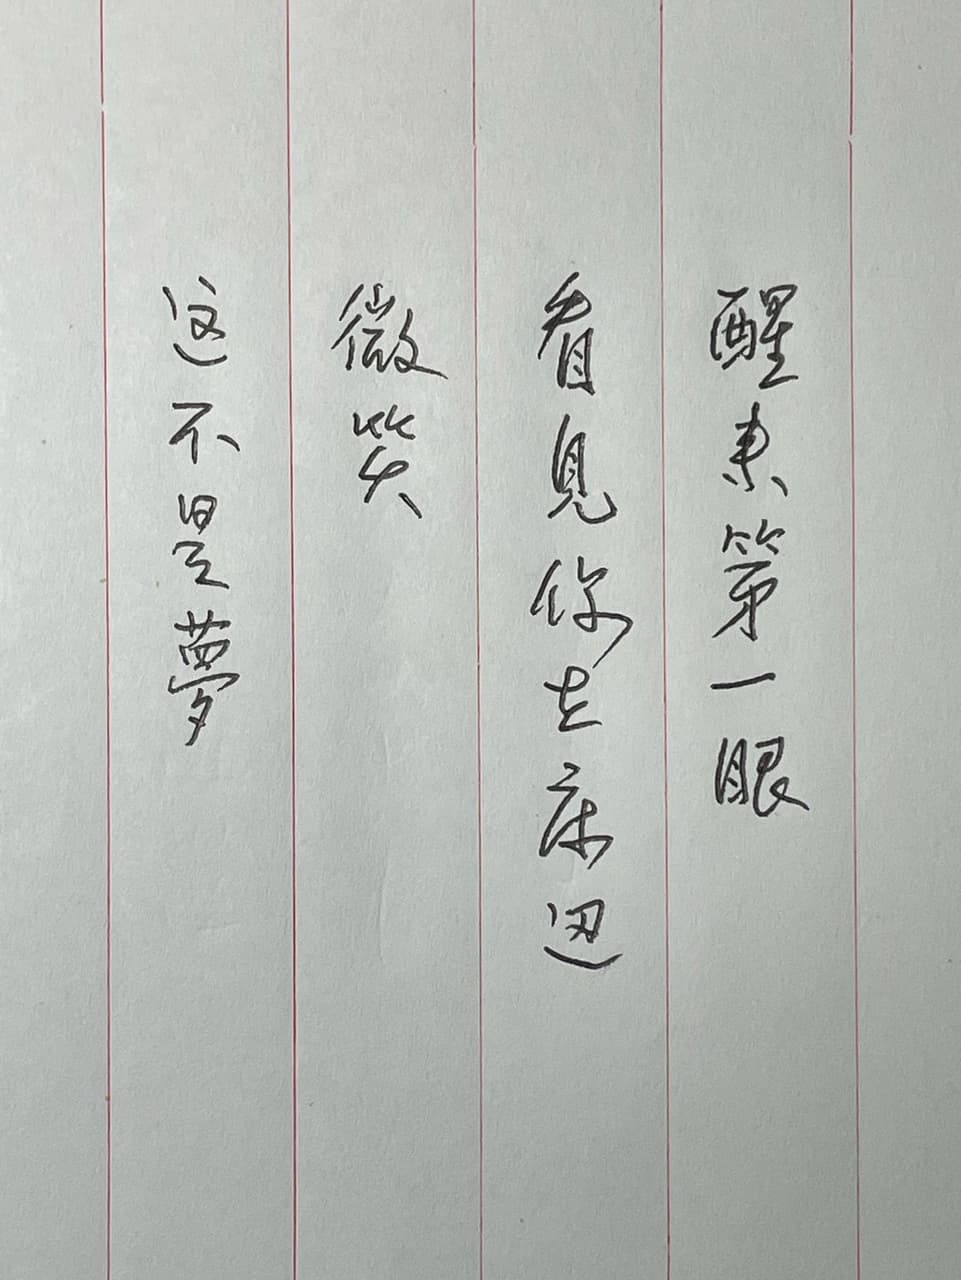 醒来第一眼
看見你在床边
微笑
这不是夢